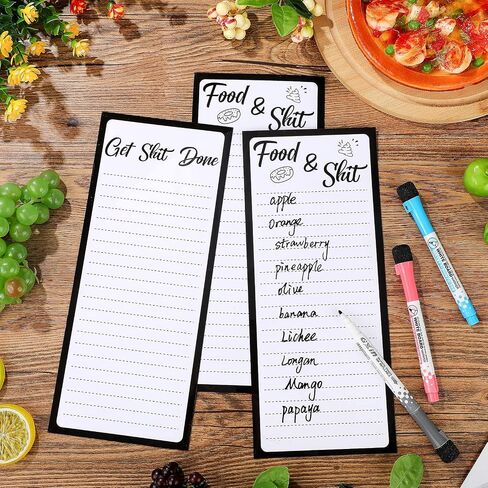 Get Shit Done
Food
& Shit
Food
& Shit
apple
orange
strawberry
pineapple
olive
banana
Lichee
Longan
Mango
papaya